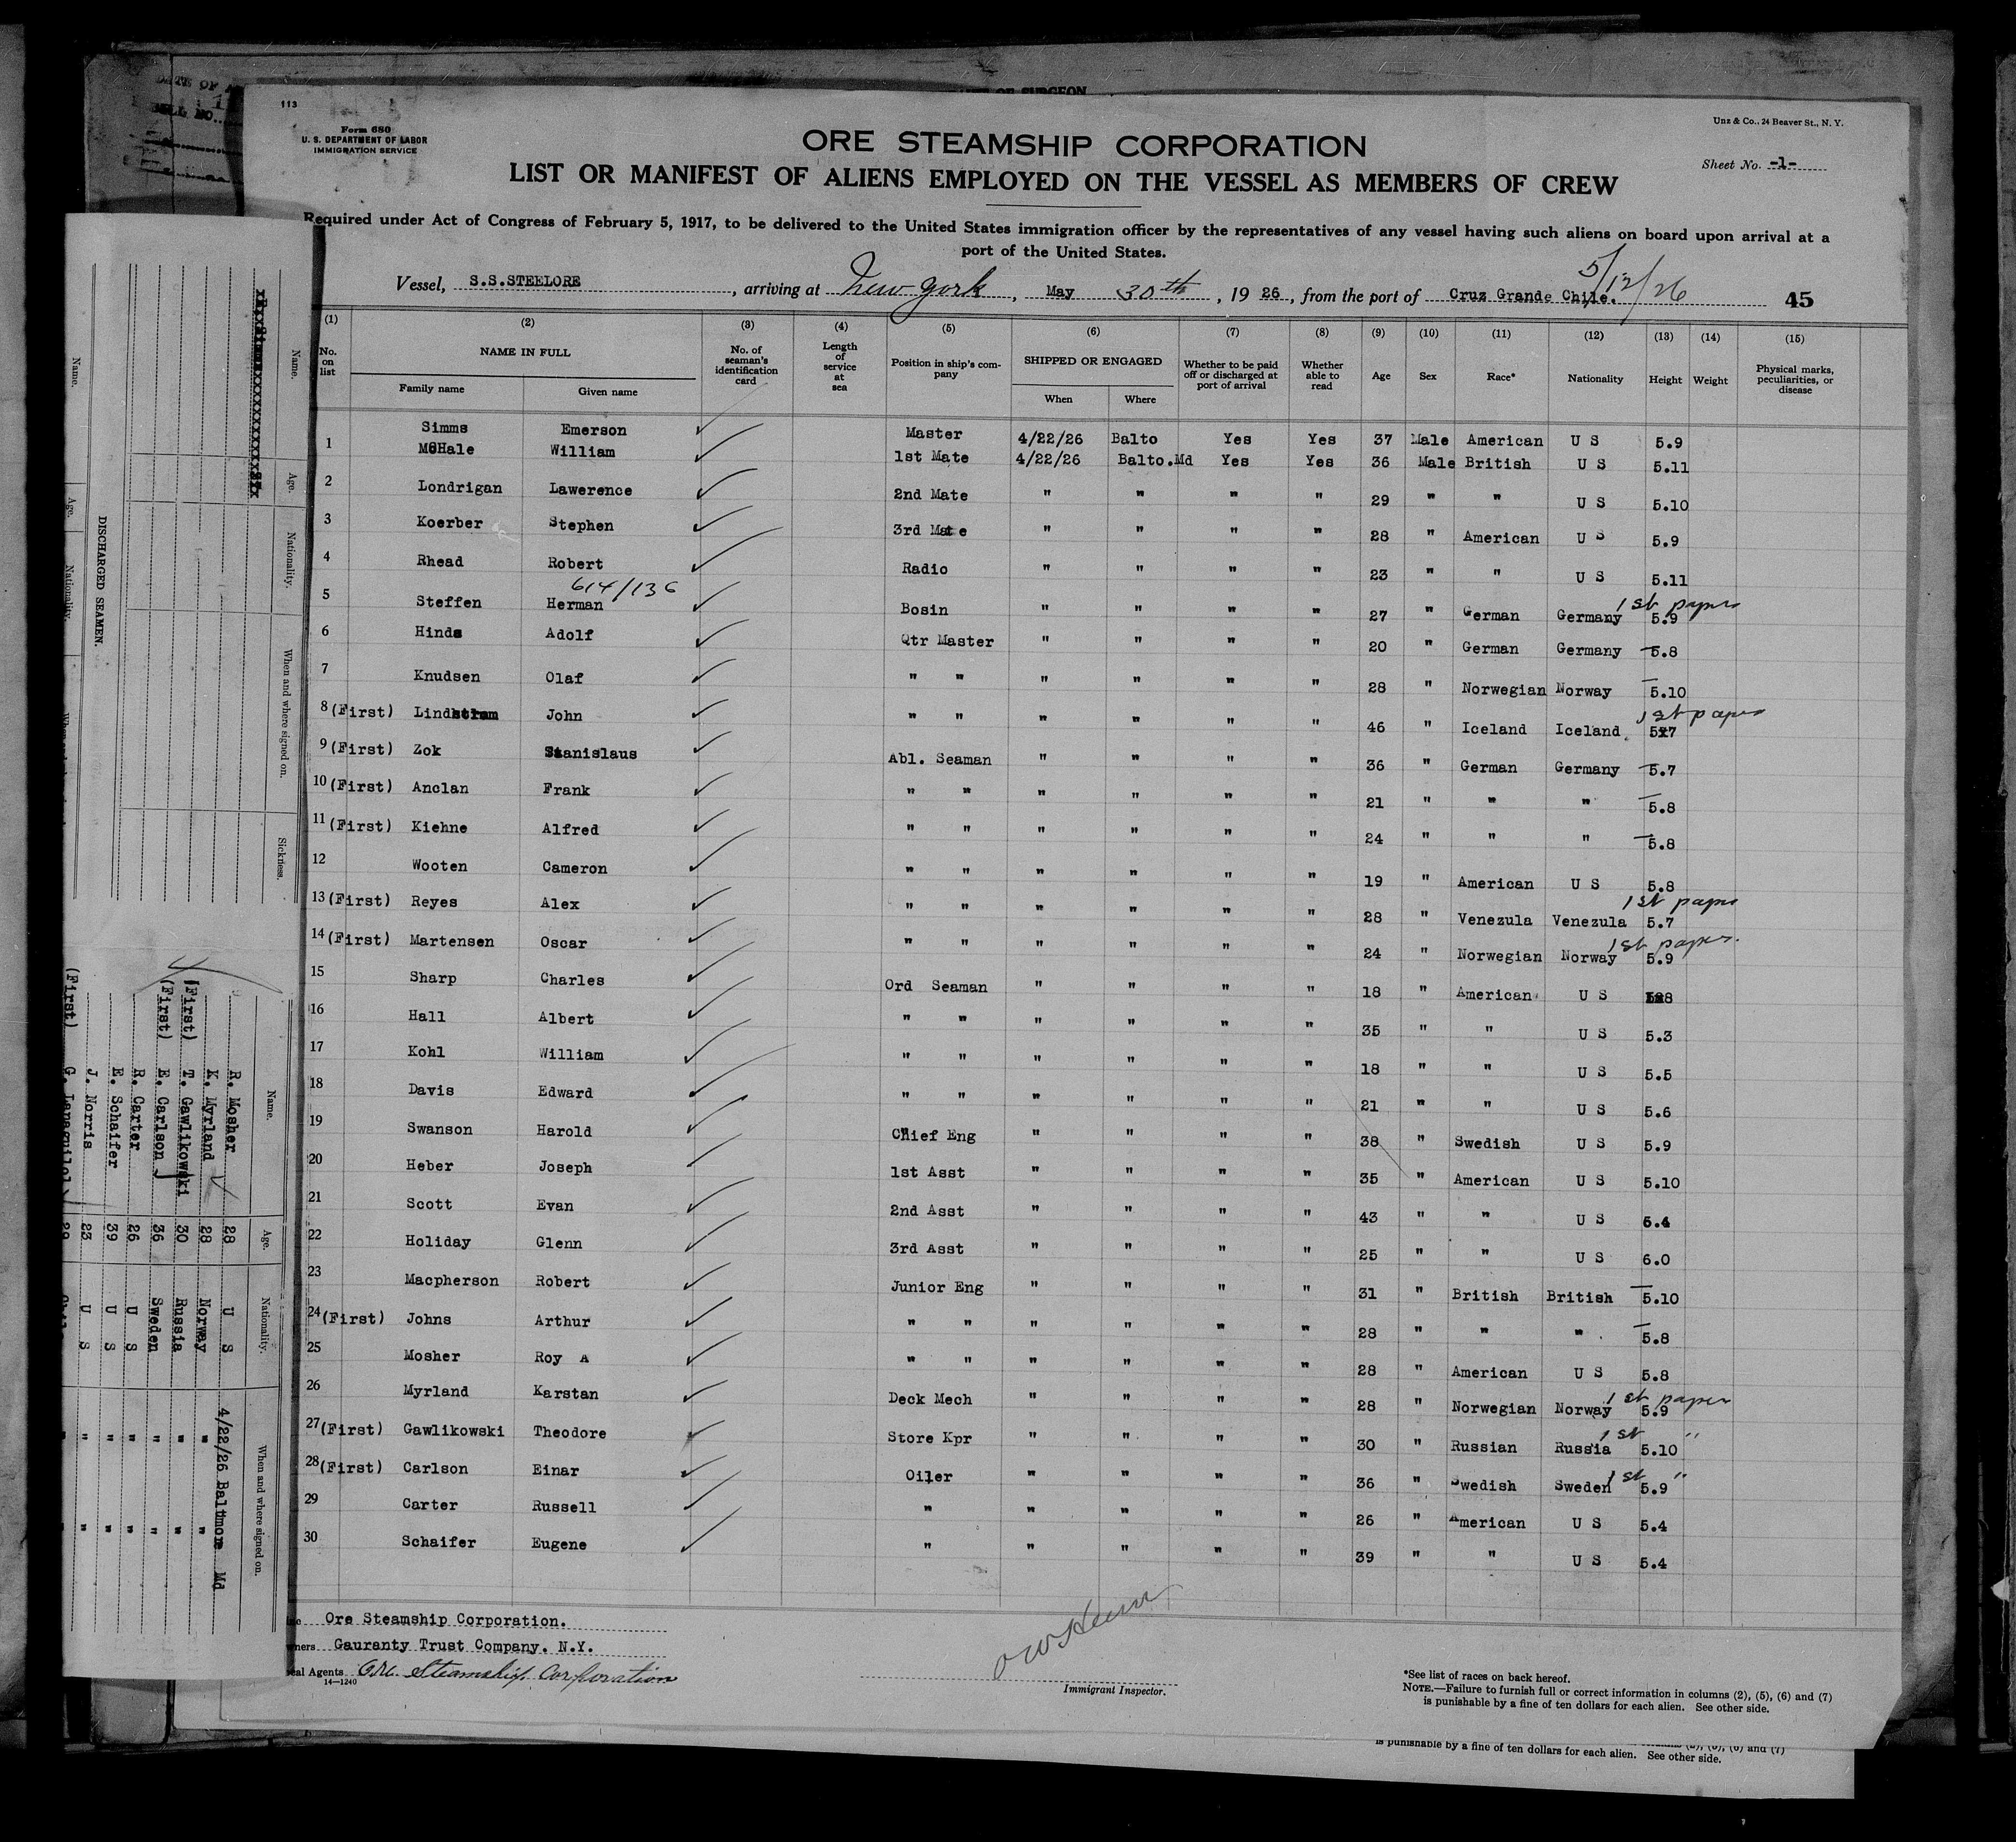 113
Form 680
U. S. DEPARTMENT OF LABOR
IMMIGRATION SERVICE
Unz & Co., 24 Beaver St., N. Y.
ORE STEAMSHIP CORPORATION
Sheet No. -1-
LIST OR MANIFEST OF ALIENS EMPLOYED ON THE VESSEL AS MEMBERS OF CREW
Required under Act of Congress of February 5, 1917, to be delivered to the United States immigration officer by the representatives of any vessel having such aliens on board upon arrival at a
port of the United States.
5/12/26
Vessel, S.S.STEELORE, arriving at New York, May 30th, 19 26, from the port of Cruz Grande Chile. 45
(1) (2) (3) (4) (5) (6) (7) (8) (9) (10) (11) (12) (13) (14) (15)
No. on list NAME IN FULL Family name Given name No. of seaman's identification card Length of service at sea Position in ship's company SHIPPED OR ENGAGED When Where Whether to be paid off or discharged at port of arrival Whether able to read Age Sex Race* Nationality Height Weight Physical marks, peculiarities, or disease
Simms Emerson Master 4/22/26 Balto Yes Yes 37 Male American U S 5.9
1 McHale William 1st Mate 4/22/26 Balto.Md Yes Yes 36 Male British U S 5.11
2 Londrigan Lawerence 2nd Mate " " " " 29 " " U S 5.10
3 Koerber Stephen 3rd Mate " " " " 28 " American U S 5.9
4 Rhead Robert Radio " " " " 23 " " U S 5.11
614/136 1st paper
5 Steffen Herman Bosin " " " " 27 " German Germany 5.9
6 Hinds Adolf Qtr Master " " " " 20 " German Germany 5.8
7 Knudsen Olaf " " " " " " 28 " Norwegian Norway 5.10
1st paper
8 (First) John " " " " " " 46 " Iceland Iceland 5.7
9 (First) Zok Stanislaus Abl. Seaman " " " " 36 " German Germany 5.7
10 (First) Anclan Frank " " " " " " 21 " " " 5.8
11 (First) Kiehne Alfred " " " " " " 24 " " " 5.8
12 Wooten Cameron " " " " " " 19 " American U S 5.8
1st paper
13 (First) Reyes Alex " " " " " " 28 " Venezula Venezula 5.7
1st paper.
14 (First) Martensen Oscar " " " " " " 24 " Norwegian Norway 5.9
15 Sharp Charles Ord Seaman " " " " 18 " American U S
16 Hall Albert " " " " " " 35 " " U S 5.3
17 Kohl William " " " " " " 18 " " U S 5.5
18 Davis Edward " " " " " " 21 " " U S 5.6
19 Swanson Harold Chief Eng " " " " 38 " Swedish U S 5.9
20 Heber Joseph 1st Asst " " " " 35 " American U S 5.10
21 Scott Evan 2nd Asst " " " " 43 " " U S 5.4
22 Holiday Glenn 3rd Asst " " " " 25 " " U S 6.0
23 Macpherson Robert Junior Eng " " " " 31 " British British 5.10
24 (First) Johns Arthur " " " " " " 28 " " " 5.8
25 Mosher Roy A " " " " " " 28 " American U S 5.8
26 Myrland Karstan Deck Mech " " " " 28 " Norwegian Norway 5.9 1st paper
27 (First) Gawlikowski Theodore Store Kpr " " " " 30 " Russian Russia 5.10 1st "
28 (First) Carlson Einar Oiler " " " " 36 " Swedish Sweden 5.9 1st "
29 Carter Russell " " " " " 26 " American U S 5.4
30 Schaifer Eugene " " " " " 39 " " U S 5.4
Ore Steamship Corporation.
Gauranty Trust Company. N.Y.
Agents Ore Steamship Corporation
14—1240
Immigrant Inspector.
*See list of races on back hereof.
NOTE.—Failure to furnish full or correct information in columns (2), (5), (6) and (7)
is punishable by a fine of ten dollars for each alien. See other side.
is punishable by a fine of ten dollars for each alien. See other side.
DISCHARGED SEAMEN.
Name. Age. Nationality. When and where signed on. Sickness.
Name. Age. Nationality. When and where signed on.
R. Mosher 28 U S 4/22/26 Baltmore Md
K. Myrland 28 Norway " "
(First) T. Gawlikowski 30 Russia " "
(First) E. Carlson 36 Sweden " "
R. Carter 26 U S " "
E. Schaifer 39 U S " "
J. Norris 23 U S " "
(First) G.